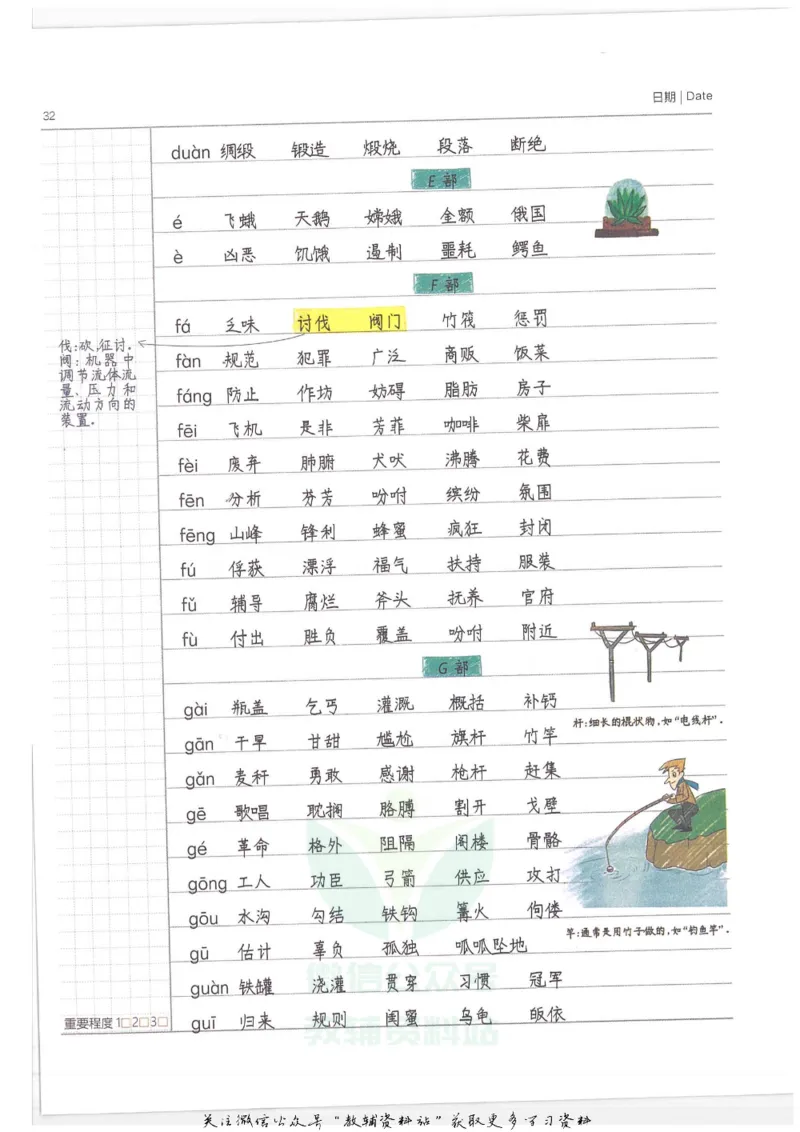 日期 | Date
32
duàn 绸缎 锻造 煅烧 段落 断绝
E 部
é 飞蛾 天鹅 嫦娥 金额 俄国
è 凶恶 饥饿 遏制 噩耗 鳄鱼
F 部
fá 乏味 讨伐 阀门 竹筏 惩罚
伐:砍,征讨.
阀:机器中
调节流体流
量、压力和
流动方向的
装置.
fàn 规范 犯罪 广泛 商贩 饭菜
fáng 防止 作坊 妨碍 脂肪 房子
fēi 飞机 是非 芳菲 咖啡 柴扉
fèi 废弃 肺腑 犬吠 沸腾 花费
fēn 分析 芬芳 吩咐 缤纷 氛围
fēng 山峰 锋利 蜂蜜 疯狂 封闭
fú 俘获 漂浮 福气 扶持 服装
fǔ 辅导 腐烂 斧头 抚养 官府
fù 付出 胜负 覆盖 吩咐 附近
G 部
gài 瓶盖 乞丐 灌溉 概括 补钙
杆:细长的棍状物,如“电线杆”.
gān 干旱 甘甜 尴尬 旗杆 竹竿
gǎn 麦秆 勇敢 感谢 枪杆 赶集
gē 歌唱 耽搁 胳膊 割开 戈壁
gé 革命 格外 阻隔 阁楼 骨骼
gōng 工人 功臣 弓箭 供应 攻打
gōu 水沟 勾结 铁钩 篝火 佝偻
竿:通常是用竹子做的,如“钓鱼竿”.
gū 估计 辜负 孤独 呱呱坠地
guàn 铁罐 浇灌 贯穿 习惯 冠军
guī 归来 规则 闺蜜 乌龟 皈依
重要程度 1□2□3□
微信公众号
教辅资料站
关注微信公众号“教辅资料站”获取更多学习资料